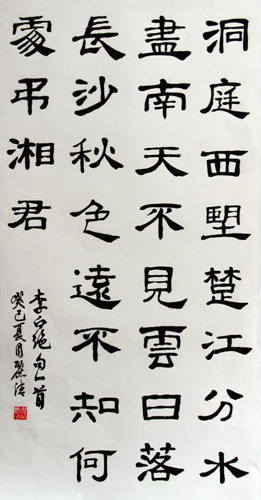 洞庭西望楚江分水
盡南天不見雲日落
長沙秋色遠不知何
處弔湘君
李白絕句一首
癸巳夏月